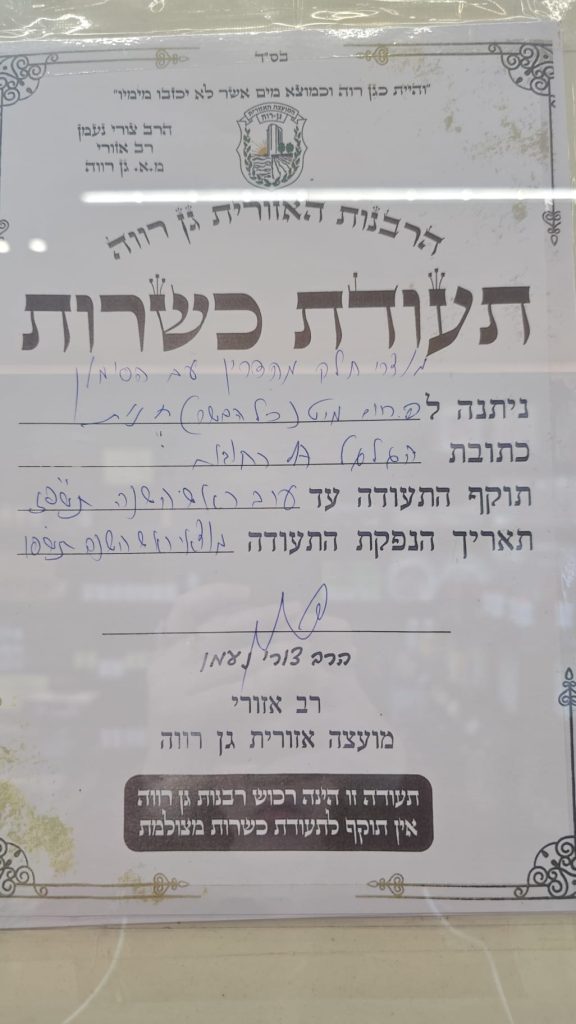 בס"ד
"והיית כגן רוה וכמוצא מים אשר לא יכזבו מימיו"
הרב צורי נעמן
רב אזורי
מ.א. גן רווה
המועצה האזורית
גן-רוה
הרבנות האזורית גן רווה
תעודת כשרות
מוצרי חלק מהדרין עם הסימון
ניתנה ל מיט (כל הבשר) חנות
כתובת רחובות
תוקף התעודה עד ערב ראש השנה תשפ"ז
תאריך הנפקת התעודה מוצאי ראש השנה תשפ"ו
הרב צורי נעמן
רב אזורי
מועצה אזורית גן רווה
תעודה זו הינה רכוש רבנות גן רווה
אין תוקף לתעודת כשרות מצולמת